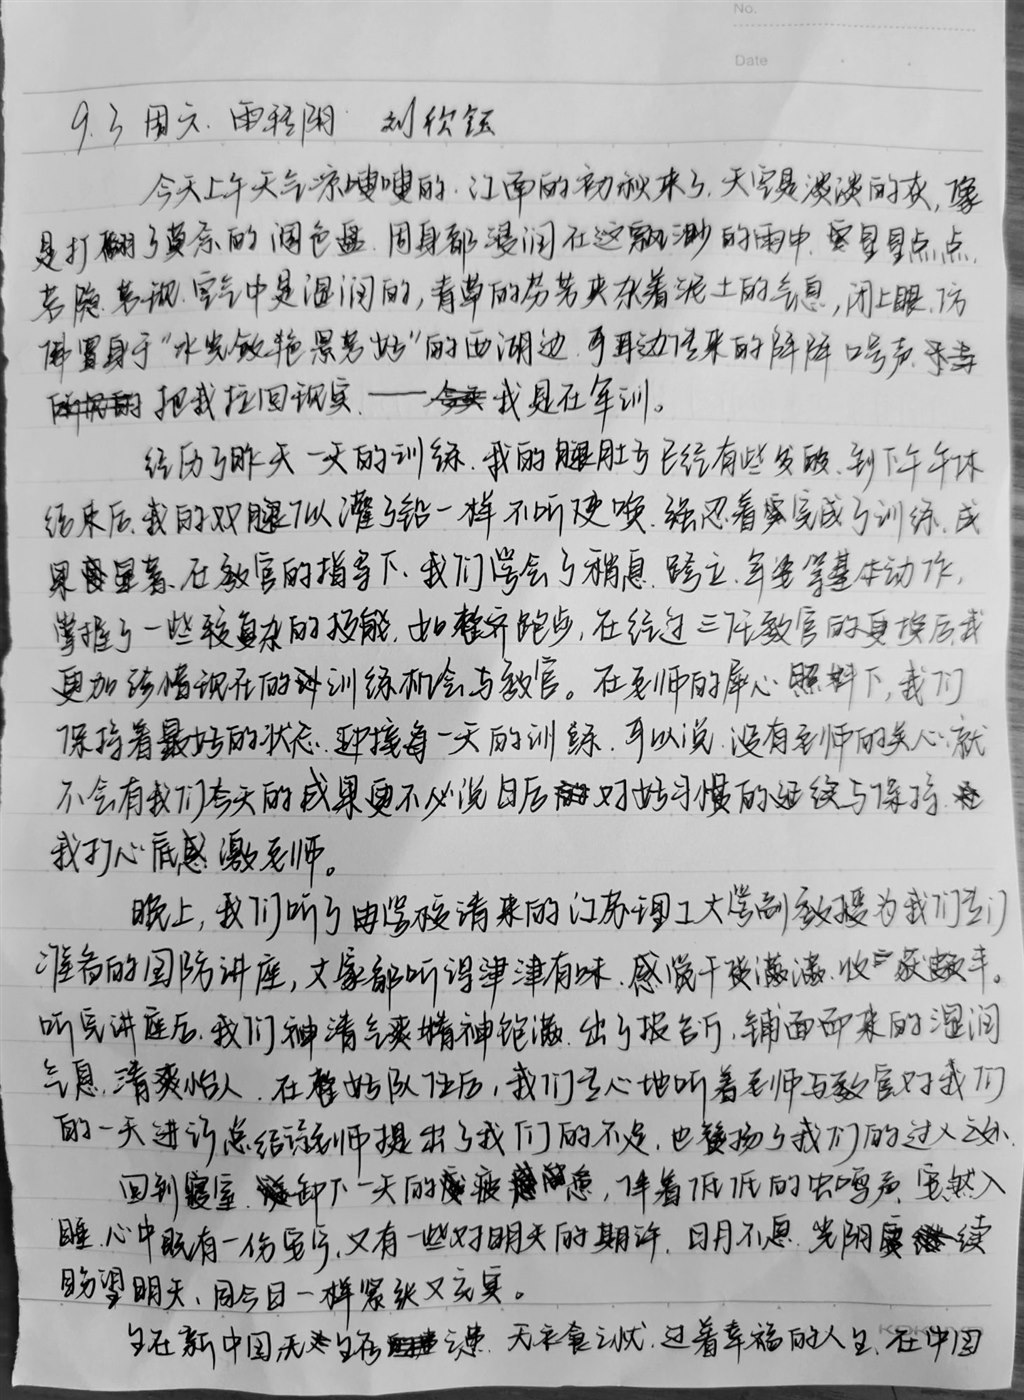 No.
Date
9.3 周六 雨转阴 刘欣钰
今天上午天气凉嗖嗖的.江南的初秋来了,天空是淡淡的灰,像
是打翻了莫奈的调色盘.周身都浸润在这飘渺的雨中.星星点点,
若隐若现.空气中是湿润的,青草的芬芳夹杂着泥土的气息,闭上眼,仿
佛置身于“水光潋滟景若好”的西湖边.可耳边传来的阵阵口号声
把我拉回现实.——我是在军训。
经历了昨天一天的训练.我的腿肚子已经有些发酸.到下午午休
结束后.我的双腿似灌了铅一样不听使唤.强忍着完成了训练.成
果显著.在教官的指导下.我们学会了稍息.跨立.等基本动作,
掌握了一些较复杂的技能.如整齐跑步,在经过三任教官的更换后,我
更加珍惜现在的训练机会与教官。在老师的犀心照料下,我们
保持着最好的状态.迎接每一天的训练.可以说.没有老师的关心,就
不会有我们今天的成果更不必说日后对好习惯的延续与保持.
我打心底感激老师。
晚上,我们听了由学校请来的江苏理工大学副教授为我们专门
准备的国防讲座,大家都听得津津有味.感觉干货满满.收获颇丰。
听完讲座后.我们神清气爽精神饱满.出了报告厅,铺面而来的湿润
气息.清爽怡人.在整好队伍后,我们专心地听着老师与教官对我们
的一天进行总结该老师提出了我们的不足,也赞扬了我们的过人之处.
回到寝室.卸下一天的疲惫,伴着低低的虫鸣声.安然入
睡.心中既有一份安宁,又有一些对明天的期许.日月不息.光阴续
盼望明天、同今日一样紧张又充实。
生在新中国无 无衣食之忧.过着幸福的人生.在中国